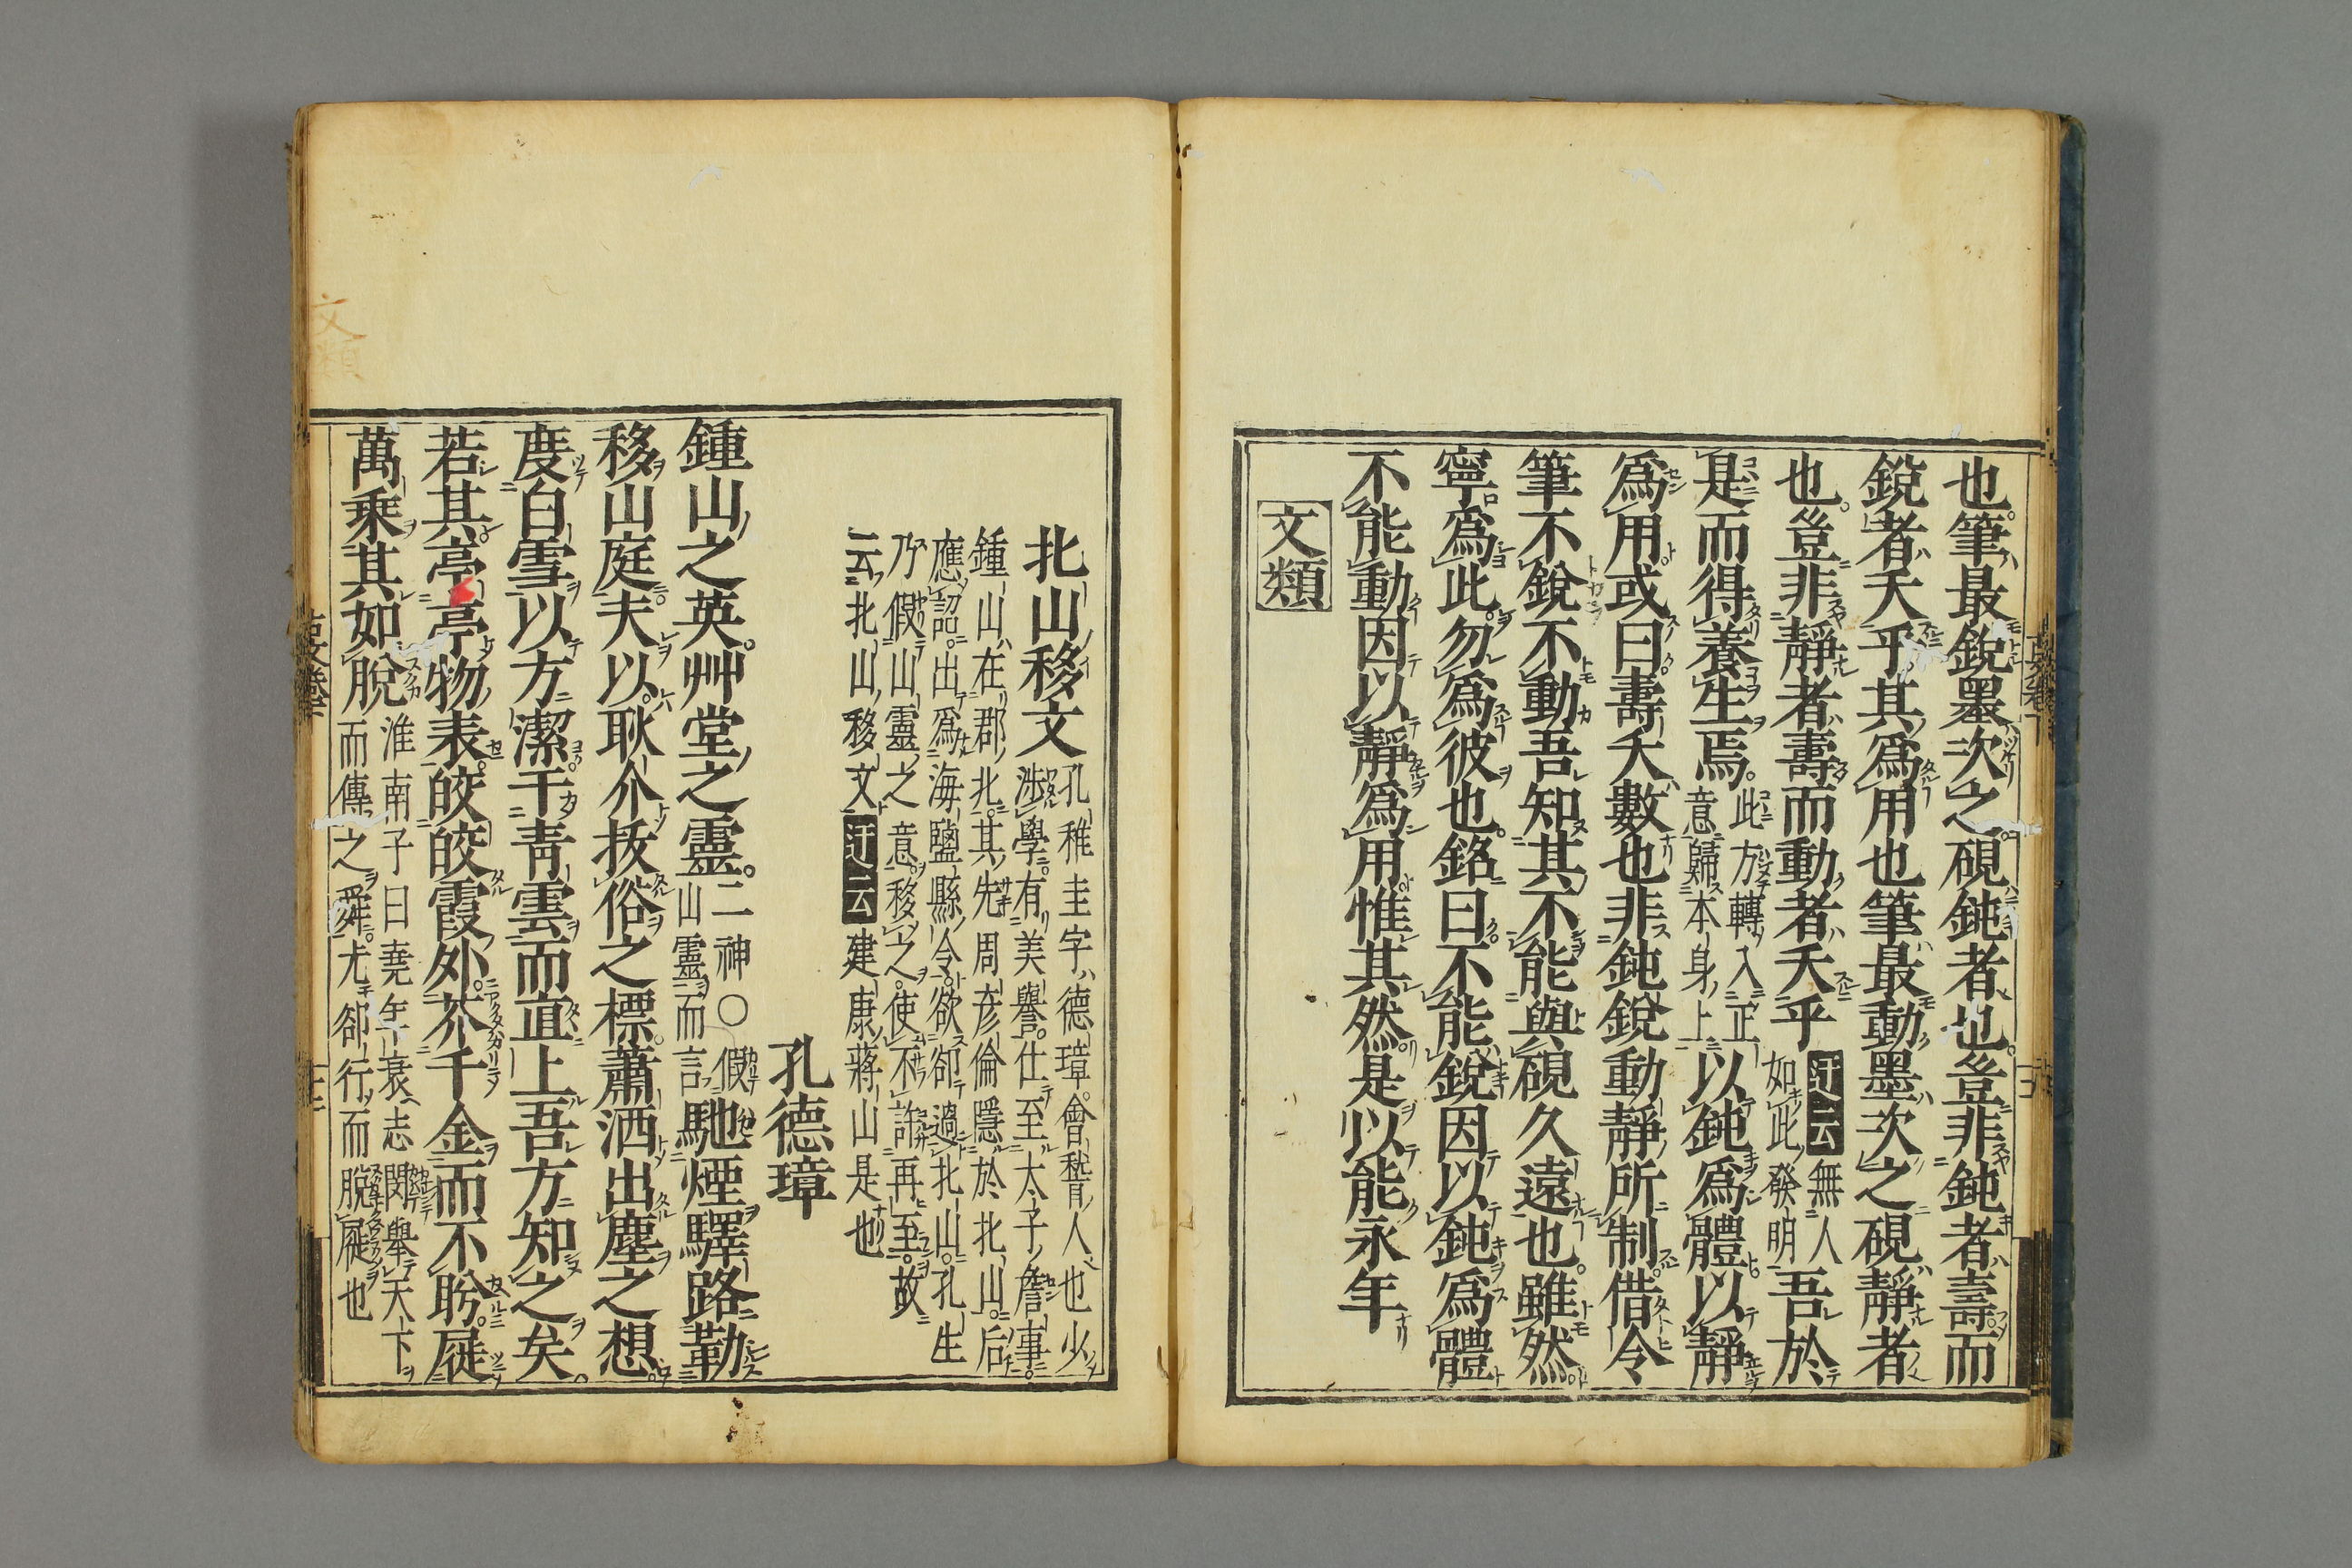 也筆最銳墨次之硯鈍者也豈非鈍者壽而
銳者夭乎其爲用也筆最動墨次之硯靜者
也豈非靜者壽而動者夭乎
迂云無人
如此發明
吾於
是而得養生焉
此方轉入正
意歸本身上
以鈍爲體以靜
爲用或曰壽夭數也非鈍銳動靜所制借令
筆不銳不動吾知其不能與硯久遠也雖然
寧爲此勿爲彼也銘曰不能銳因以鈍爲體
不能動因以靜爲用惟其然是以能永年
文類
北山移文
孔稚圭字德璋會稽人也少
渉學有美譽仕至太子詹事
鍾山在郡北其先周彦倫隱於北山后
應詔出爲海鹽縣令欲卻過北山孔生
乃假山靈之意移之使不許再至故
云北山移文迂云建康蔣山是也
孔德璋
鍾山之英艸堂之靈
二神〇假
山靈而言
馳煙驛路勒
移山庭夫以耿介拔俗之標蕭洒出塵之想
度白雪以方潔干青雲而直上吾方知之矣
若其亭亭物表皎皎霞外芥千金而不盻屣
萬乘其如脫
淮南子曰堯年衰志閔舉天下
而傳之舜尤卻行而脫屣也
文類